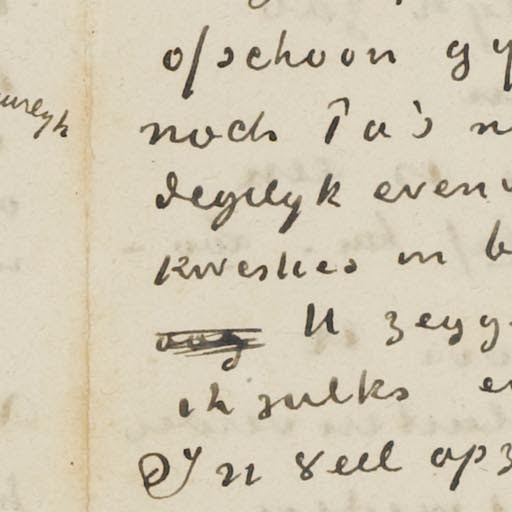 ofschoon gy
noch Pa's n
degelyk even
kwesties in b
oog U zegg
ik zulks en
In veel opz